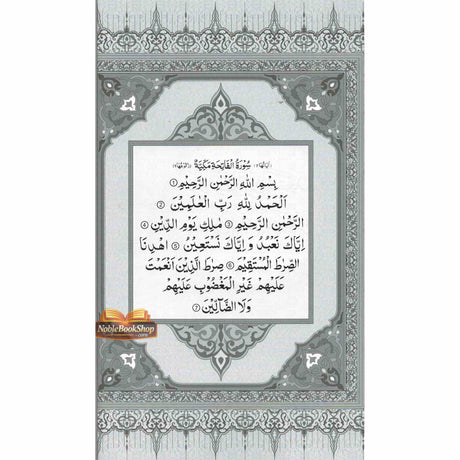 سُوْرَةُ الْفَاتِحَةِ مَكِّيَّةٌ
بِسْمِ اللهِ الرَّحْمٰنِ الرَّحِيْمِ ①
اَلْحَمْدُ لِلّٰهِ رَبِّ الْعٰلَمِيْنَ ②
الرَّحْمٰنِ الرَّحِيْمِ ③ مٰلِكِ يَوْمِ الدِّيْنِ ④
اِيَّاكَ نَعْبُدُ وَ اِيَّاكَ نَسْتَعِيْنُ ⑤ اهْدِنَا
الصِّرَاطَ الْمُسْتَقِيْمَ ⑥ صِرَاطَ الَّذِيْنَ اَنْعَمْتَ
عَلَيْهِمْ غَيْرِ الْمَغْضُوْبِ عَلَيْهِمْ
وَلَا الضَّآلِّيْنَ ⑦
NobleBookShop
.com